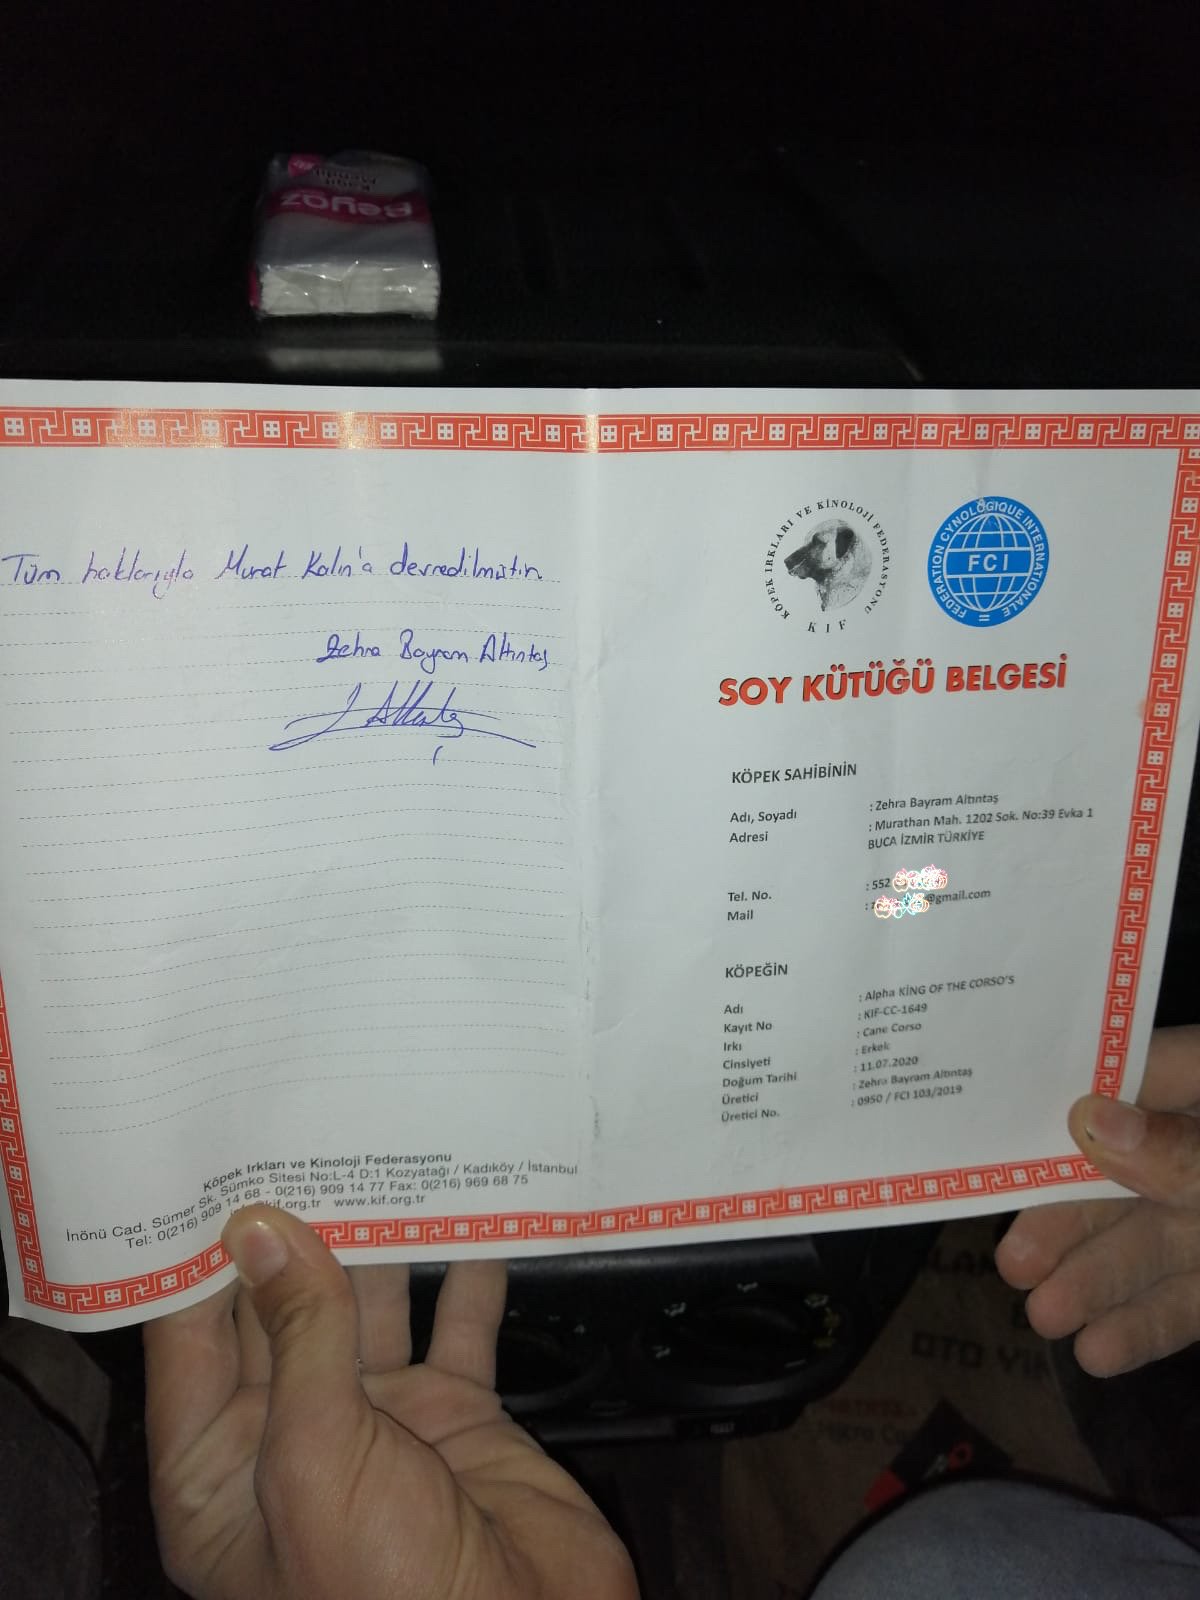 Kağıt
Mendil
Beyaz
Tüm haklarıyla Murat Kalın'a devredilmiştir.
Zehra Bayram Altıntaş
Köpek Irkları ve Kinoloji Federasyonu
İnönü Cad. Sümer Sk. Sümko Sitesi No:L-4 D:1 Kozyatağı / Kadıköy / İstanbul
Tel: 0(216) 909 14 68 - 0(216) 909 14 77 Fax: 0(216) 969 68 75
kif.org.tr www.kif.org.tr
KÖPEK IRKLARI VE KİNOLOJİ FEDERASYONU
KIF
FEDERATION CYNOLOGIQUE INTERNATIONALE
FCI
SOY KÜTÜĞÜ BELGESİ
KÖPEK SAHİBİNİN
Adı, Soyadı : Zehra Bayram Altıntaş
Adresi : Murathan Mah. 1202 Sok. No:39 Evka 1
BUCA İZMİR TÜRKİYE
Tel. No. : 552
Mail : @gmail.com
KÖPEĞİN
Adı : Alpha KİNG OF THE CORSO'S
Kayıt No : KIF-CC-1649
Irkı : Cane Corso
Cinsiyeti : Erkek
Doğum Tarihi : 11.07.2020
Üretici : Zehra Bayram Altıntaş
Üretici No. : 0950 / FCI 103/2019
OTO